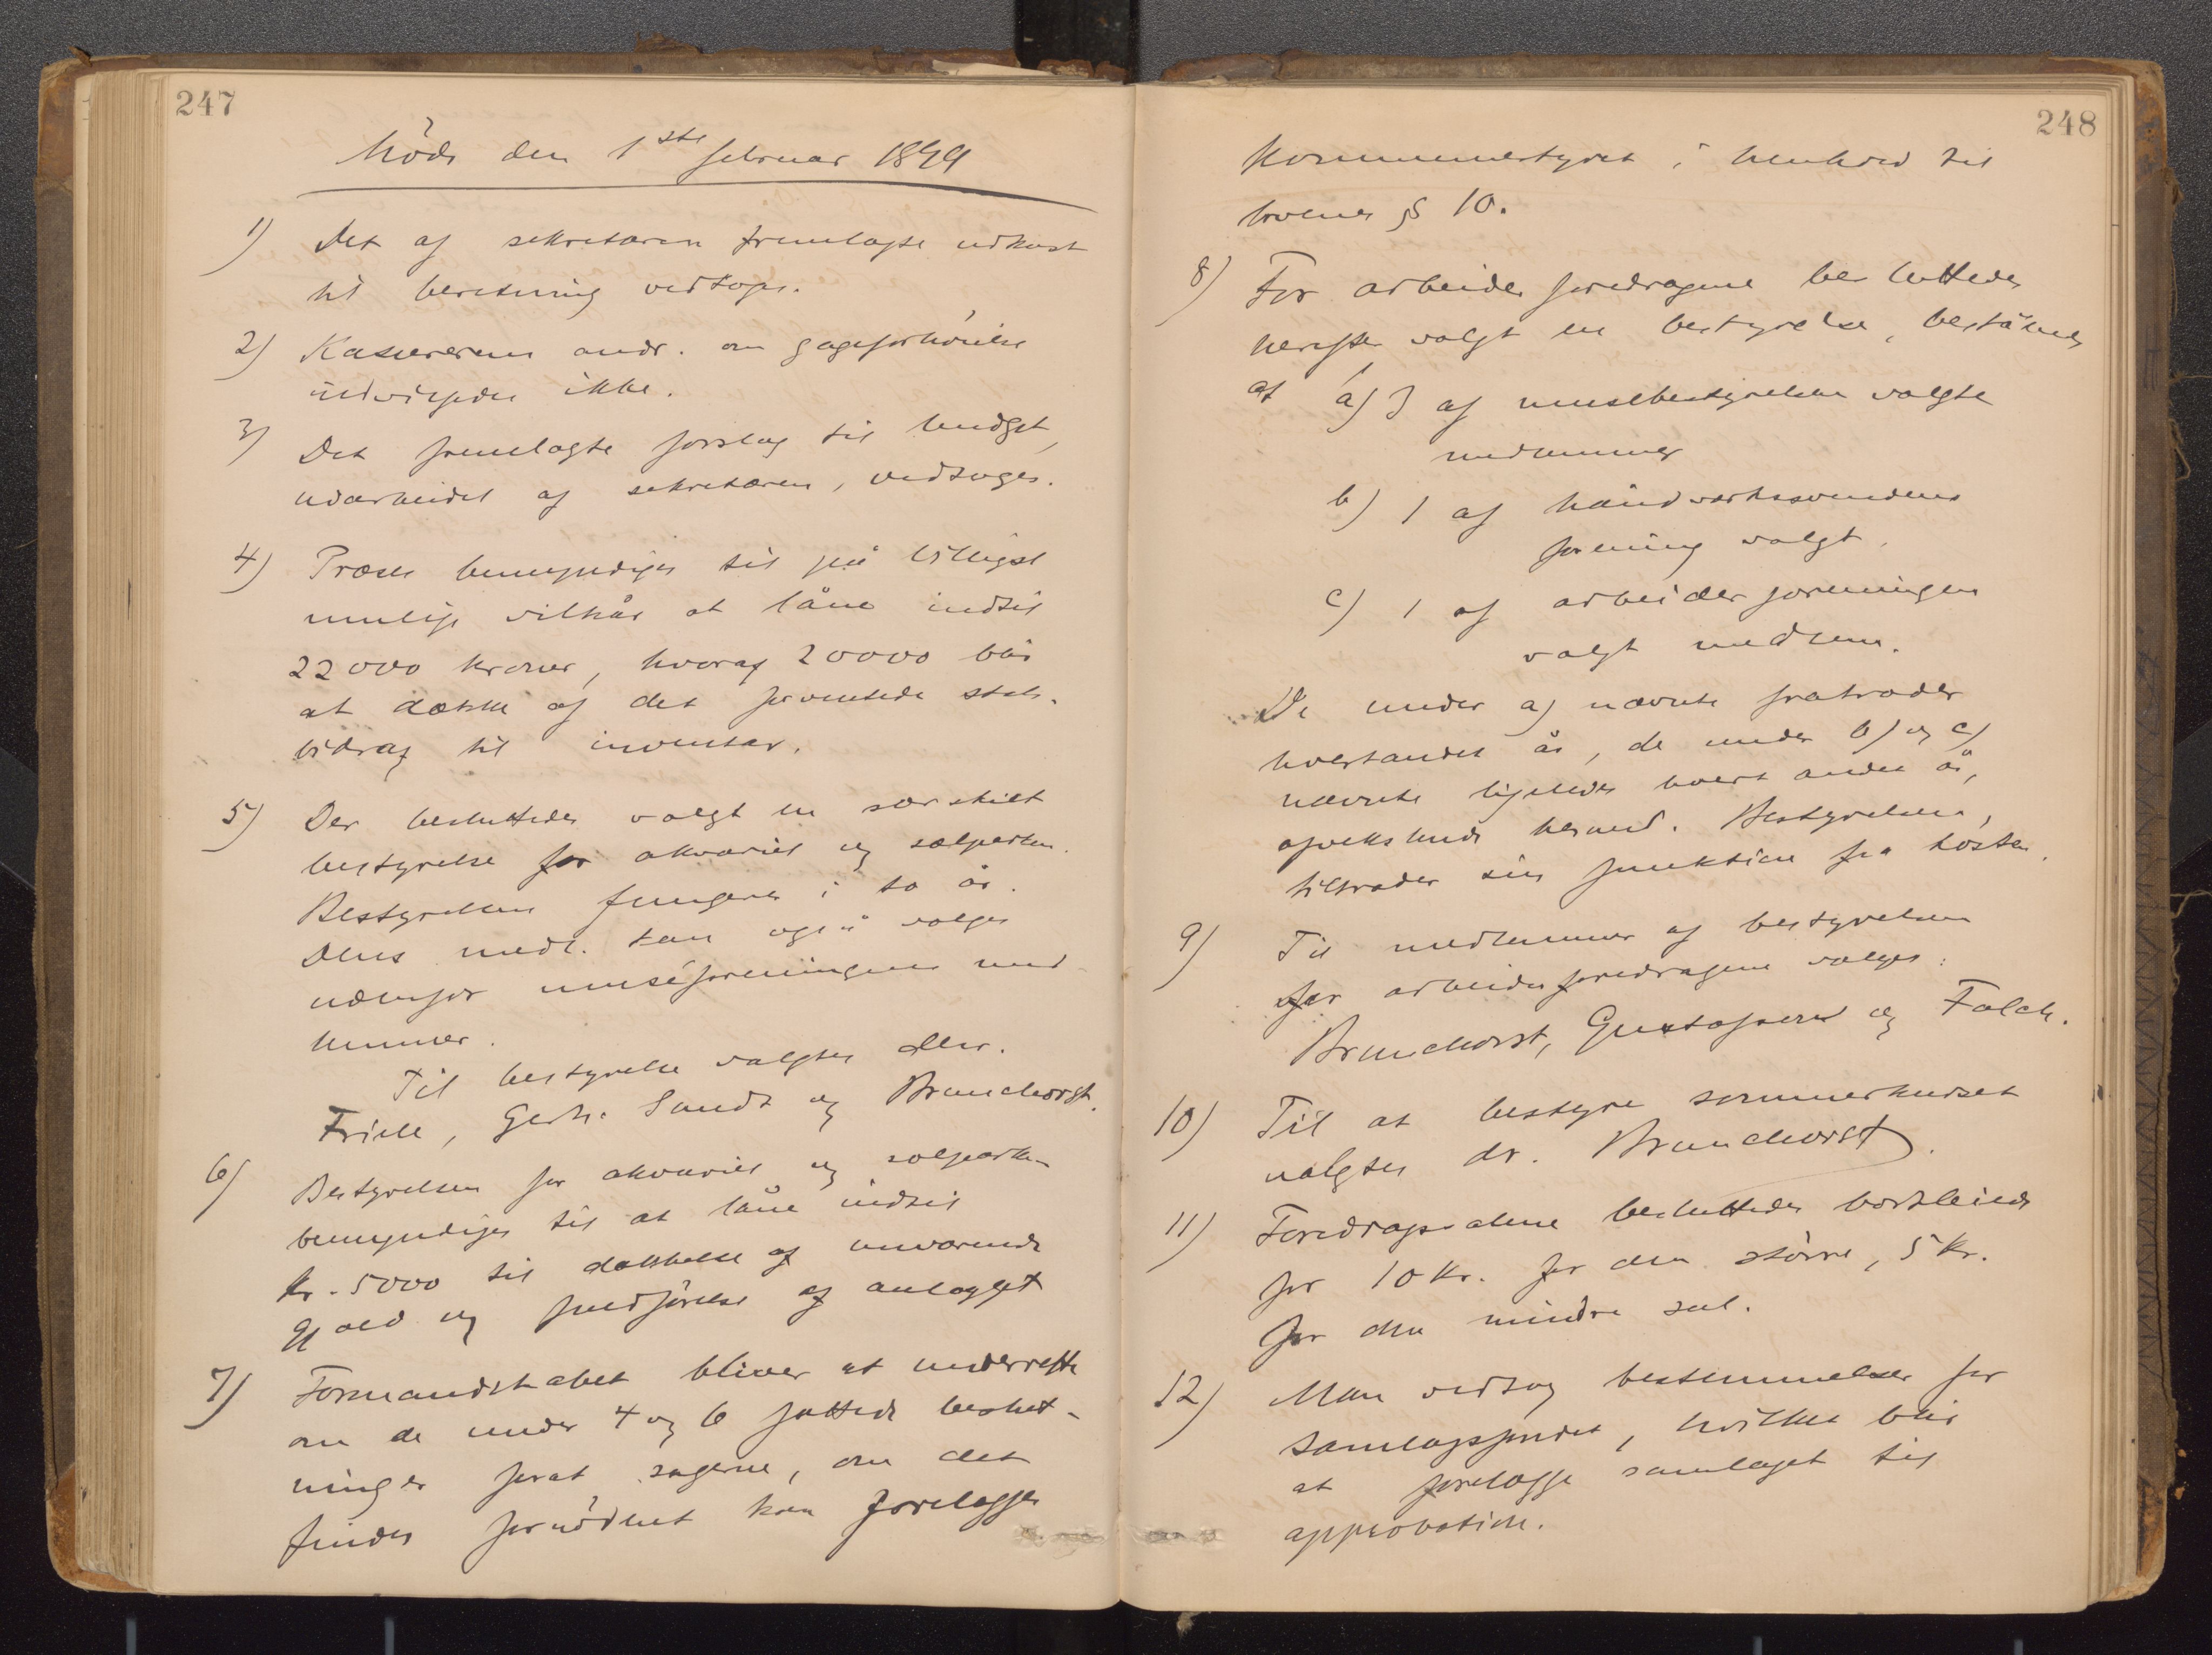 247
Möde den 1ste februar 1899
1) Det af sekretæren fremlagte udkast
til beretning vedtoges.
2) Kassererens andr. om gageforhöielse
indvilgedes ikke.
3) Det fremlagte forslag til budget,
udarbeidet af sekretæren, vedtoges.
4) Præses bemyndiges til på billigst
mulige vilkår at låne indtil
22000 kroner, hvoraf 20000 blir
at dække af det forventede stats-
bidrag til inventar.
5) Der besluttedes valgt en særskilt
bestyrelse for akvariet og sælparken.
Bestyrelsen fungerer i to år.
Dens medl. kan også vælges
udenfor muséforeningens med-
lemmer.
Til bestyrelse valgtes dhrr.
Friele, Gerh. Sundt og Brunchorst.
6) Bestyrelsen for akvariet og sælparken
bemyndiges til at låne indtil
kr. 5000 til dækkelse af nuværende
gjæld og fuldførelse af anlægget
7) Formandskabet bliver at underrette
om de under 4 og 6 fattede beslut-
ninger forat sagerne, om det
findes fornödent kan forelægges
248
kommunestyret i henhold til
lovens § 10.
8) For arbeiderforedragene besluttedes
herefter valgt en bestyrelse, bestående
af a) 3 af musébestyrelsen valgte
medlemmer
b) 1 af håndværkssvendenes
forening valgt.
c) 1 af arbeiderforeningen
valgt medlem.
De under a) nævnte fratræder
hvertandet år, de under b) og c)
nævnte ligeledes hvert andet år,
afvekslende hermed. Bestyrelsen,
tiltræder sin funktion fra hösten.
9) Til medlemmer af bestyrelsen
for arbeiderforedragene valges:
Brunchorst, Gustafson og Falch.
10) Til at bestyre sommerkurset
valgtes dr. Brunchorst.
11) Foredragsalene besluttedes bortleiede
for 10 kr. for den større, 5 kr.
for den mindre sal.
12) Man vedtog bestemmelser for
samlagsfondet, hvilket blir
at forelægge samlaget til
approbation.